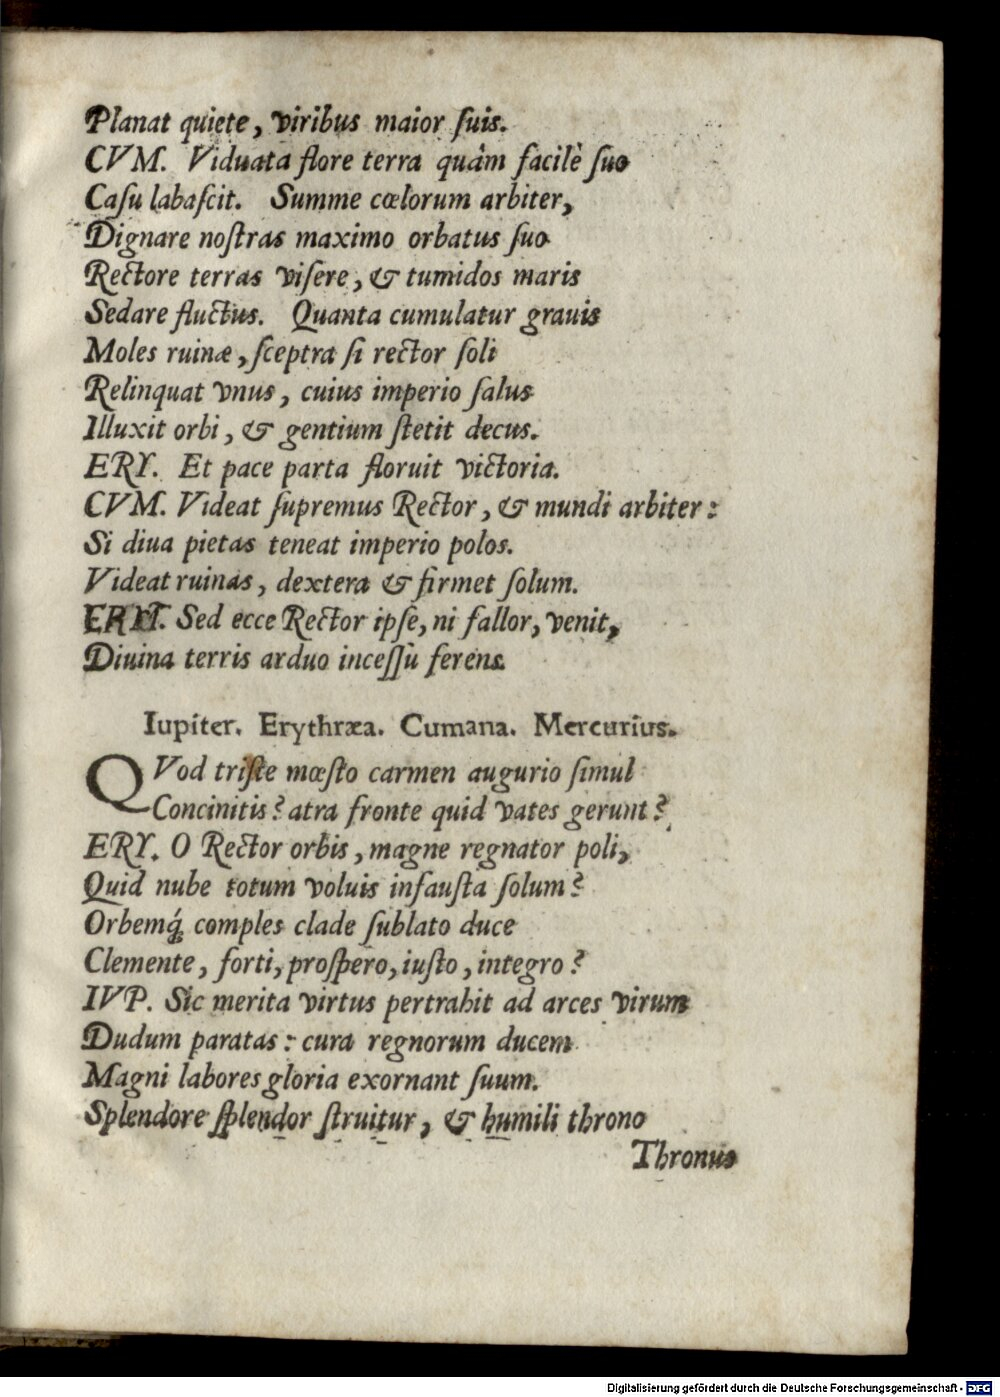 Planat quiete, viribus maior ſuis.
CVM. Viduata flore terra quàm facilè ſuo
Caſu labaſcit. Summe cœlorum arbiter,
Dignare noſtras maximo orbatus ſuo
Rectore terras viſere, & tumidos maris
Sedare fluctus. Quanta cumulatur grauis
Moles ruinæ, ſceptra ſi rector ſoli
Relinquat vnus, cuius imperio ſalus
Illuxit orbi, & gentium ſtetit decus.
ERY. Et pace parta floruit victoria.
CVM. Videat ſupremus Rector, & mundi arbiter:
Si diua pietas teneat imperio polos.
Videat ruinas, dextera & firmet ſolum.
Sed ecce Rector ipſe, ni fallor, venit,
Diuina terris arduo inceſſu ferens.
Iupiter. Erythræa. Cumana. Mercurius.
QVod triſte mœſto carmen augurio ſimul
Concinitis? atra fronte quid vates gerunt?
ERY. O Rector orbis, magne regnator poli,
Quid nube totum voluis infauſta ſolum?
Orbemq́; comples clade ſublato duce
Clemente, forti, proſpero, iuſto, integro?
IVP. Sic merita virtus pertrahit ad arces virum
Dudum paratas: cura regnorum ducem
Magni labores gloria exornant ſuum.
Splendore ſplendor ſtruitur, & humili throno
Thronus
Digitalisierung gefördert durch die Deutsche Forschungsgemeinschaft - DFG